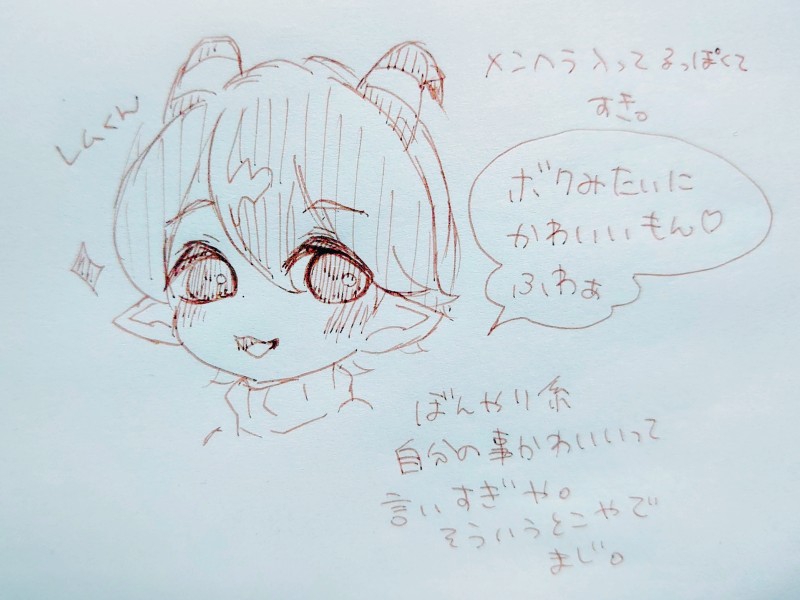 メンヘラ入ってるっぽくて
すき。
ボクみたいに
かわいいもん♡
ふわぁ
ぼんやり系
自分の事かわいいって
言いすぎや。
そういうとこやで
まじ。